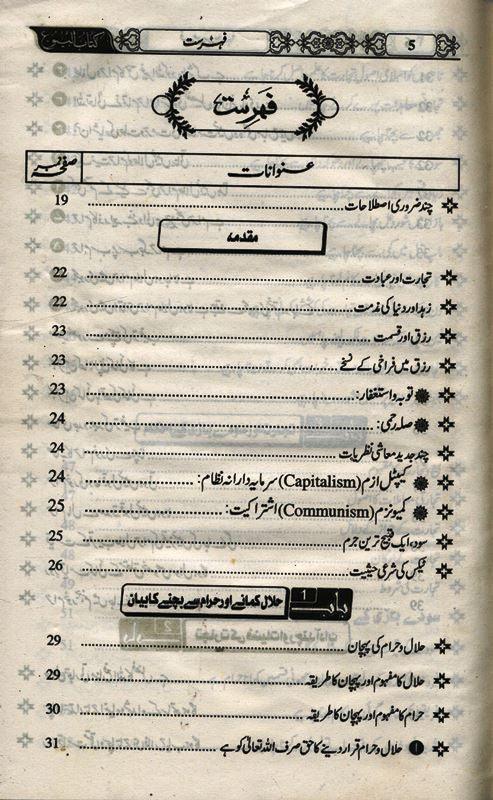 5 فہرست کتاب البیوع
فہرست
عنوانات صفحہ نمبر
چند ضروری اصطلاحات 19
مقدمہ
تجارت اور عبادت 22
زہد اور دنیا کی مذمت 22
رزق اور قسمت 23
رزق میں فراخی کے نسخے 23
توبہ و استغفار: 23
صلہ رحمی: 24
چند جدید معاشی نظریات 24
کیپٹل ازم (Capitalism) سرمایہ دارانہ نظام: 24
کمیونزم (Communism) اشتراکیت: 25
سود، ایک قبیح ترین جرم 25
ٹیکس کی شرعی حیثیت 26
باب 1 حلال کمانے اور حرام سے بچنے کا بیان
حلال و حرام کی پہچان 29
حلال کا مفہوم اور پہچان کا طریقہ 29
حرام کا مفہوم اور پہچان کا طریقہ 30
1 حلال و حرام قرار دینے کا حق صرف اللہ تعالیٰ کو ہے 31